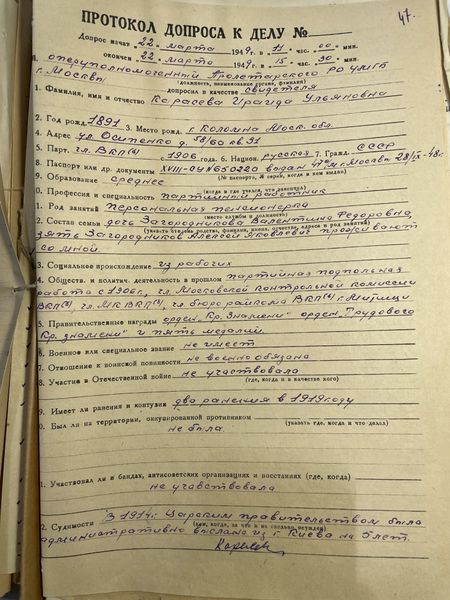 47.
ПРОТОКОЛ ДОПРОСА К ДЕЛУ №
Допрос начат „22" марта 1949 г. в 11 час. 00 мин.
окончен „22" марта 1949 г. в 15 час. 30 мин.
оперуполномоченный Пролетарского РО УМГБ
(должность, наименование органа, фамилия)
г. Москвы допросил в качестве свидетеля
1. Фамилия, имя и отчество Карасева Ираида Ульяновна
2. Год рожд. 1891 3. Место рожд. г. Коломна Моск. обл.
4. Адрес ул. Осипенко д. 58/60 кв 31
5. Парт. чл. ВКП(б) с 1906 года. 6. Национ. русская 7. Гражд. СССР
8. Паспорт или др. документы XVIII-СУ № 650220 выдан 47 о/м г. Москвы 28/IX-48 г.
(№ паспорта, № серии, когда и кем выдан)
9. Образование среднее
(когда и где учился, что закончил)
0. Профессия и специальность партийный работник
1. Род занятий персональная пенсионерка
(место службы и должность)
2. Состав семьи дочь Загородникова Валентина Федоровна,
(указать степень родства, фамилии, имена, отчества, адреса и род занятий)
зять Загородников Алексей Яковлевич проживают
со мной.
3. Социальное происхождение из рабочих
4. Обществ. и политич. деятельность в прошлом партийная подпольная
работа с 1906 г., чл. Московской контрольной комиссии
ВКП(б), чл. МК ВКП(б), чл. бюро райкома ВКП(б) г. Мытищи
5. Правительственные награды орден „Кр. Знамени" орден „Трудового
Кр. знамени" и пять медалий
6. Военное или специальное звание не имеет
7. Отношение к воинской повинности не военно обязана
8. Участие в Отечественной войне не участвовала
(где, когда и в качестве кого)
9. Имеет ли ранения и контузии два ранения в 1919 году
0. Был ли на территории, оккупированной противником
(указать где, когда и что делал)
не была
1. Участвовал ли в бандах, антисоветских организациях и восстаниях (где, когда)
не учавствовала
2. Судимости В 1914 г. Царским правительством была
(кем, когда, за что и на сколько осужден)
административно выслана из г. Киева на 5 лет.